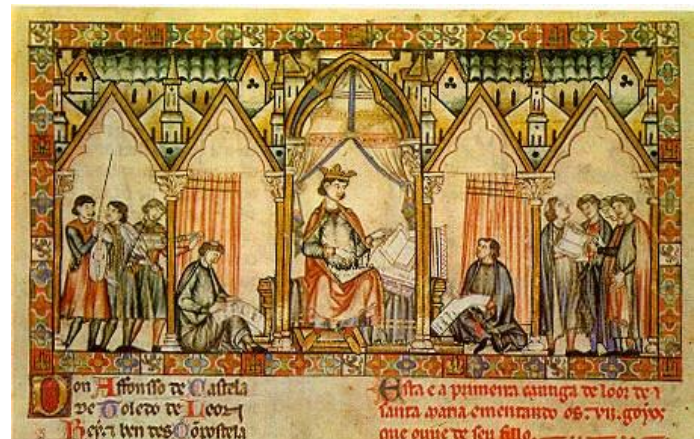 Don Affonsso de Castela
de Toledo de Leon
Rey ben des Compostela
Esta e a primeira cantiga de loor de
santa maria ementando os .vii. goyos
que ouue de seu fillo